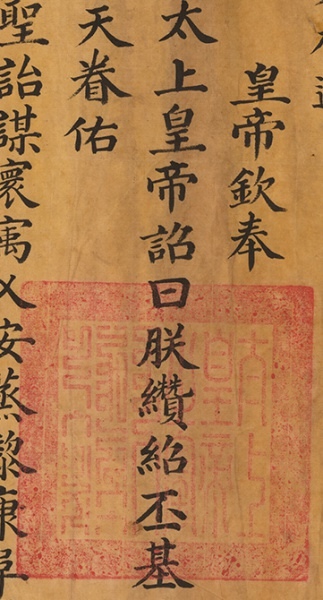 皇帝欽奉
太上皇帝詔曰朕纘紹丕基
天眷佑
聖詒謀寰寓乂安蒸黎康阜